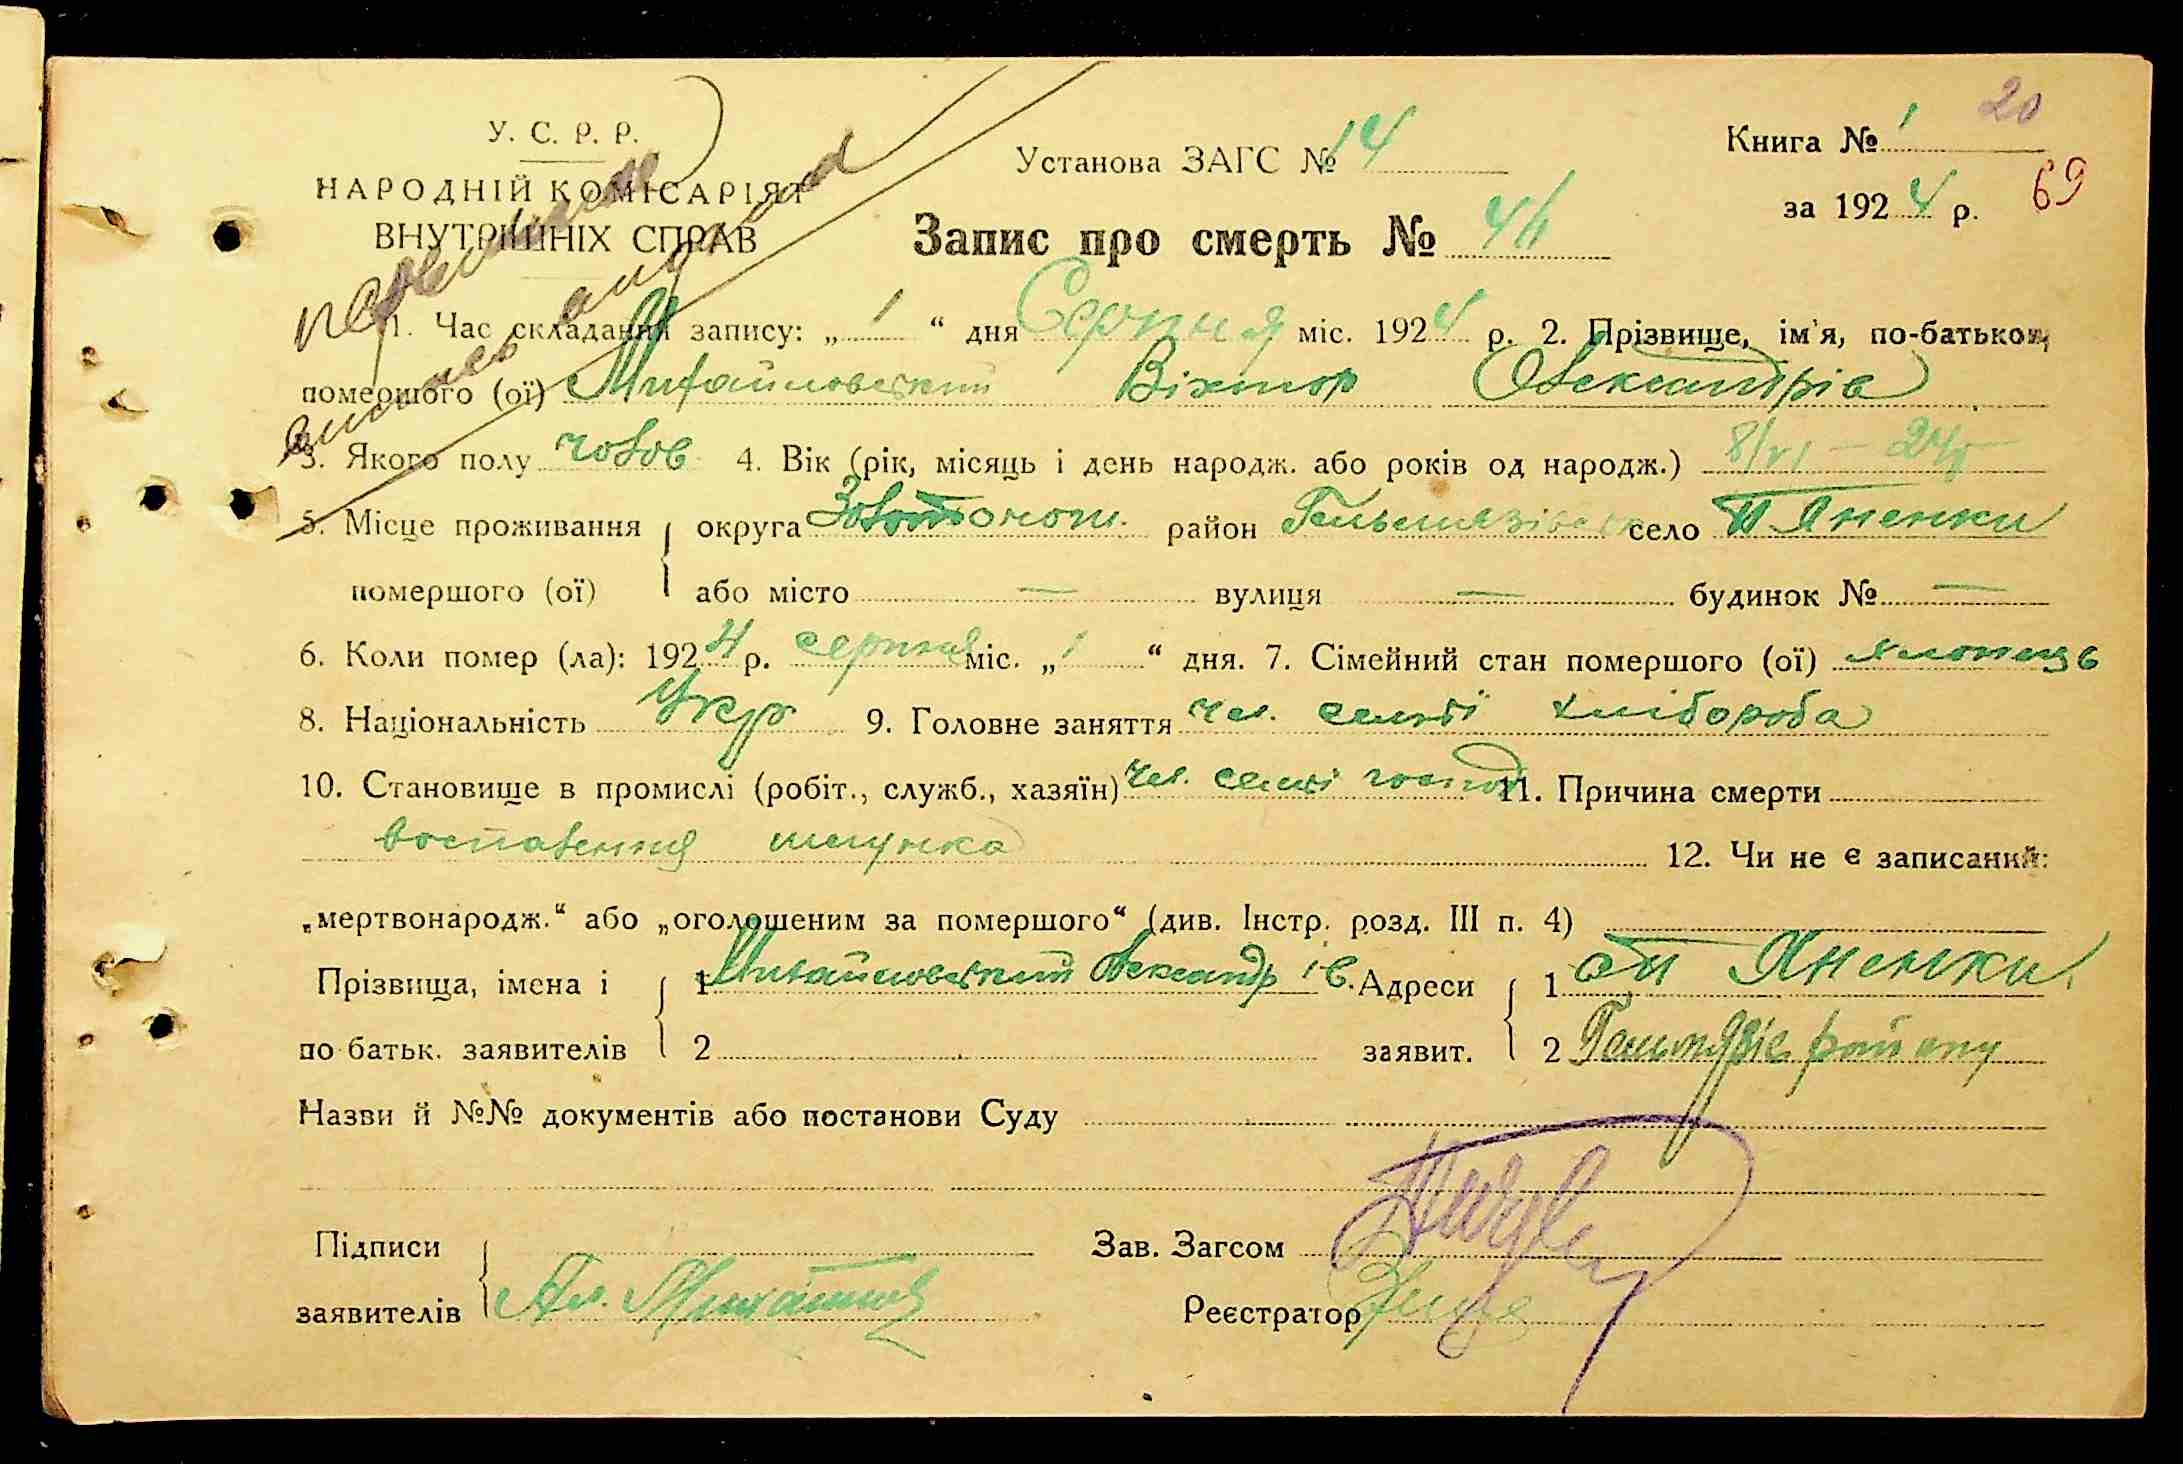 20
У. С. Р. Р.
Установа ЗАГС № 14
Книга № 1
НАРОДНІЙ КОМІСАРІЯТ
за 1924 р. 69
ВНУТРІШНІХ СПРАВ
Запис про смерть №
1. Час складання запису: „1“ дня Серпня міс. 1924 р. 2. Прізвище, ім'я, по-батькови,
помершого (ої) Михайловский Віхтор Олександрів
3. Якого полу чолов 4. Вік (рік, місяць і день народж. або років од народж.) 8/VI – 24р
5. Місце проживання округа Золотонош. район Гельмязівск село П Яненки
помершого (ої) або місто — вулиця — будинок № —
6. Коли помер (ла): 1924 р. серпня міс. „1“ дня. 7. Сімейний стан помершого (ої)
8. Національність Укр 9. Головне заняття чл. семї хлібороба
10. Становище в промислі (робіт., служб., хазяїн) чл. семї господ 11. Причина смерти
воспаления шлунка 12. Чи не є записаний:
„мертвонародж.“ або „оголошеним за помершого“ (див. Інстр. розд. III п. 4)
Прізвища, імена і 1 Михайловский Олександр Адреси 1 Яненки
по батьк. заявителів 2 заявит. 2 Гельмязів району
Назви й №№ документів або постанови Суду
Підписи Зав. Загсом
заявителів Ал. Михайлов Реєстратор